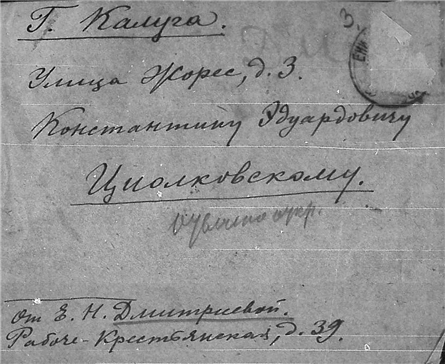 Г. Калуга.
3.
Улица Жорес, д. 3.
Константину Эдуардовичу
Циолковскому.
от Е. Н. Дмитриевой.
Рабоче-Крестьянская, д. 39.